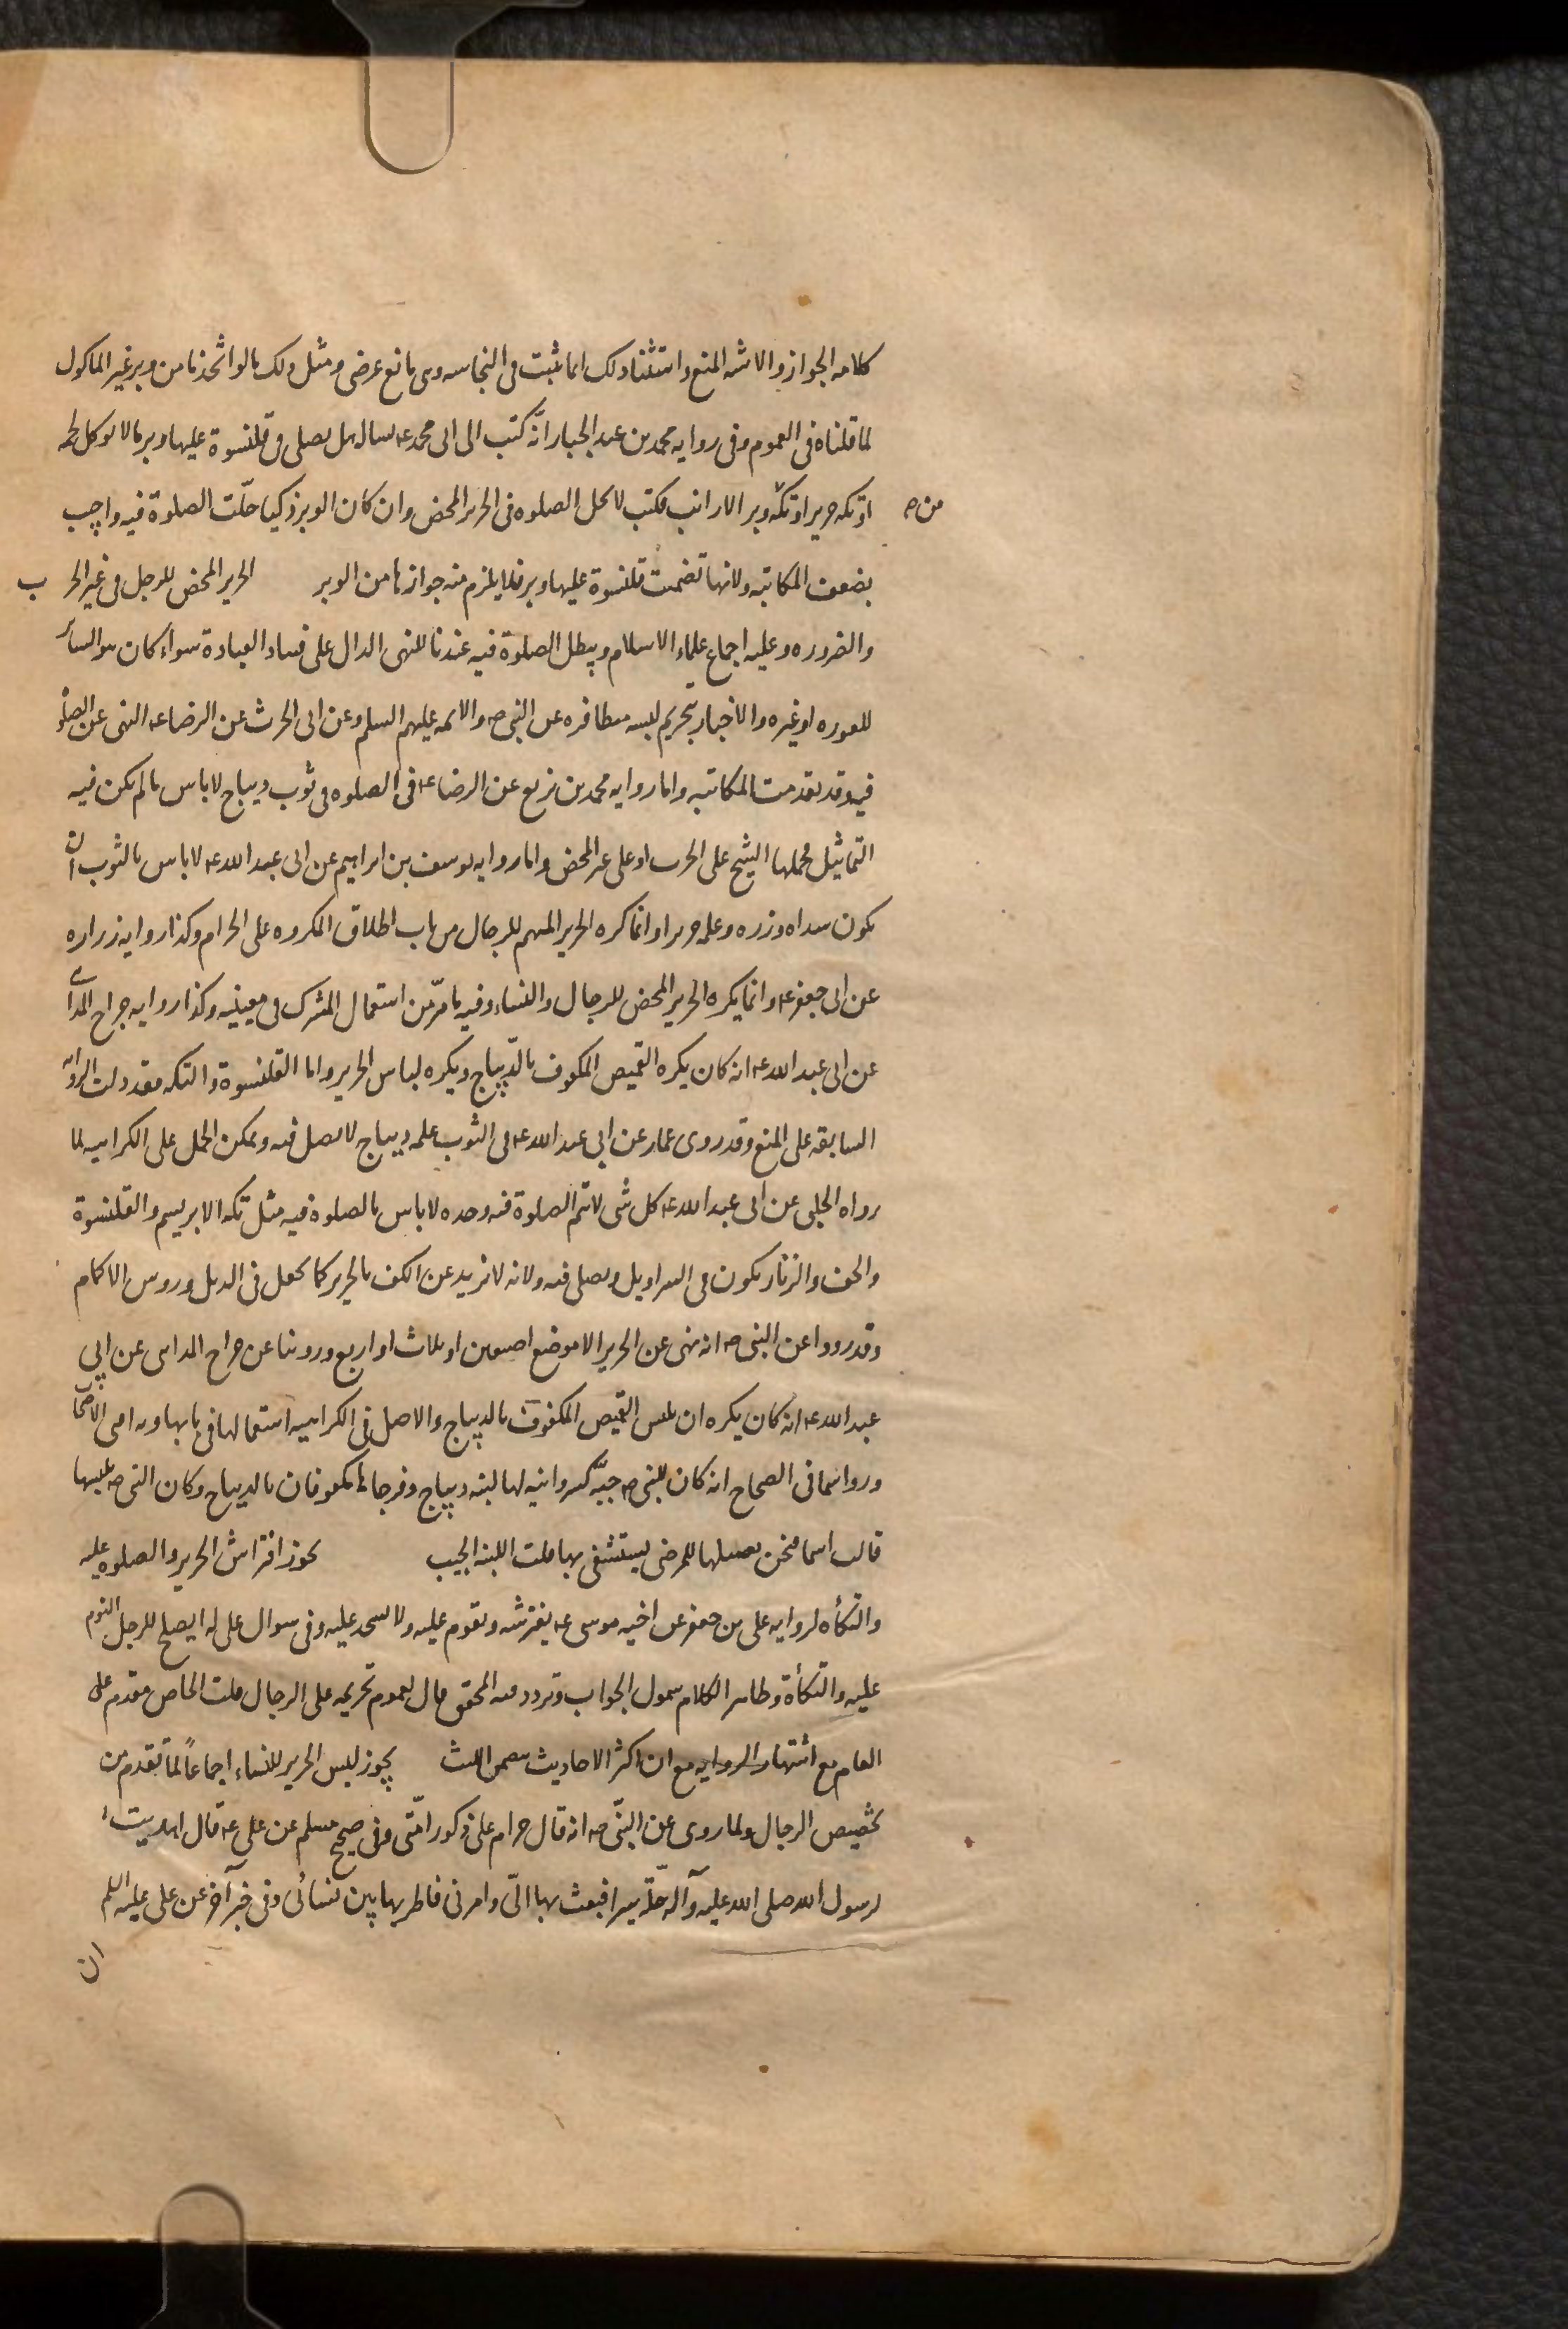 كلامه الجواز والاشبه المنع واستثناء ذلك انما ثبت فى النجاسه وهى مانع عرضى ومثل ذلك مالو اتخذنا من وبر غير الماكول
لما قلناه فى العموم وفى روايه محمد بن عبد الجبار انّه كتب الى ابى محمد ع يساله هل يصلى فى قلنسوة عليها وبر مالا يوكل لحمه
او تكه حرير او تكّة وبر الارانب فكتب لا تحل الصلوه فى الحرير المحض وان كان الوبر ذكيا حلّت الصلوة فيه واجيب
من ص
بضعف المكاتبه ولانها تضمنت قلنسوة عليها وبر فلا يلزم منه جوازها من الوبر الحرير المحض للرجل فى غير الحرب
والضروره وعليه اجماع علماء الاسلام ويبطل الصلوة فيه عندنا للنهى الدال على فساد العبادة سواء كان هو الساتر
للعوره او غيره والاخبار بتحريم لبسه متظافره عن النبى ص والائمه عليهم السلم وعن ابى الحرث عن الرضا ع النهى عن الصلوة
فيه وقد تقدمت المكاتبه واما روايه محمد بن بزيع عن الرضا ع فى الصلوه فى ثوب ديباج لاباس مالم يكن فيه
التماثيل فحملها الشيخ على الحرب او على غير المحض واما روايه يوسف بن ابراهيم عن ابى عبد الله ع لاباس بالثوب ان
يكون سداه وزره وعلمه حريرا وانما كره الحرير المبهم للرجال من باب اطلاق المكروه على الحرام وكذا روايه زراره
عن ابى جعفر ع وانما يكره الحرير المحض للرجال والنساء وفيه مامرّ من استعمال المشترك فى معنييه وكذا روايه جراح المداينى
عن ابى عبد الله ع انه كان يكره القميص المكفوف بالدّيباج ويكره لباس الحرير واما القلنسوة والتكه فقد دلت الروايه
السابقه على المنع وقد روى عمار عن ابى عبد الله ع فى الثوب علمه ديباج لا يصل فيه ويمكن الحمل على الكراهيه لما
رواه الحلبى عن ابى عبد الله ع كل شى لاتتم الصلوة فيه وحده لاباس بالصلوة فيه مثل تكه الابريسم والقلنسوة
والخف والزنار يكون فى السراويل ويصلى فيه ولانه لا يزيد عن الكف بالحرير كما يجعل فى الذيل وروس الاكمام
وقد رووا عن النبى ص انه نهى عن الحرير الا موضع اصبعين او ثلاث او اربع وروينا عن جراح المداينى عن ابى
عبد الله ع انه كان يكره ان يلبس القميص المكفوف بالديباج والاصل فى الكراهيه استعمالها فى بابها وبه افتى الاصحاب
ورواسما فى الصحاح انه كان للنبى ص جبّه كسروانيه لها لبنه ديباج وفرجاها مكفوفان بالديباج وكان النبى ص يلبسها
قالت اسما فنحن نغسلها للمرضى يستشفى بها قلت اللبنه الجيب يجوز افتراش الحرير والصلوه عليه
والتكأه لروايه على بن جعفر عن اخيه موسى ع يفترشه ويقوم عليه ولا يسجد عليه وفى سوال على له ايصلح للرجل النوم
عليه والتكأة وظاهر الكلام شمول الجواب وتردد فيه المحقق قال لعموم تحريمه على الرجال قلت الخاص مقدم على
العام مع اشتهار الروايه مع ان اكثر الاحاديث يتضمن اللبث يجوز لبس الحرير للنساء اجماعاً لما تقدم من
تخصيص الرجال ولما روى عن النبّى ص انه قال حرام على ذكور امّتى وفى صحيح مسلم عن على ع قال اهديت
لرسول الله صلى الله عليه وآله حلّة سيرا فبعث بها الىّ وامرنى فاطرتها بين نسائى وفى خبر آخر عن على عليه السلم
ان